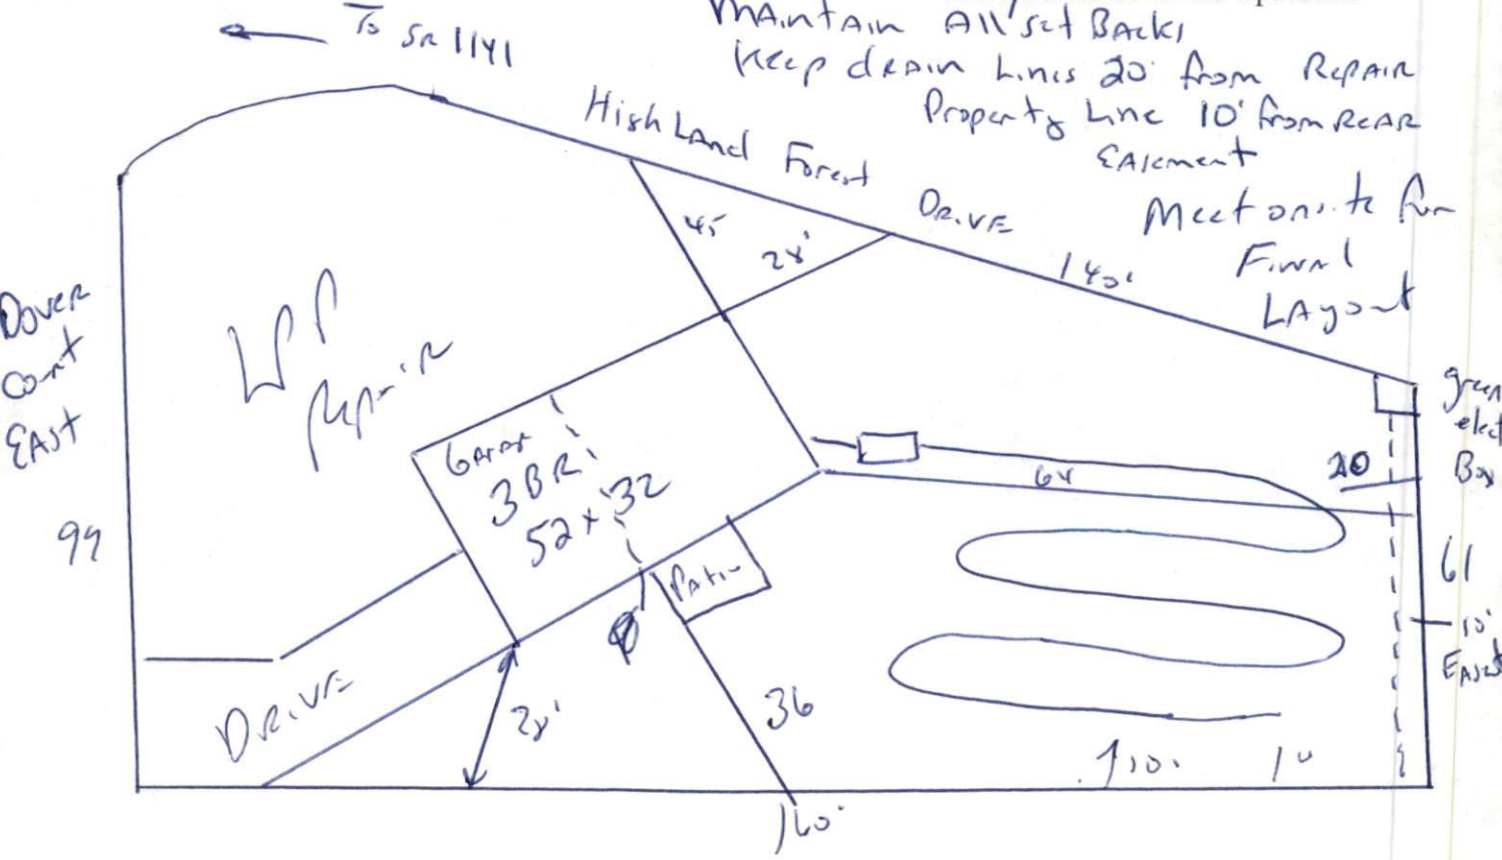 To SR 1141
Maintain All set Backs
Keep drain Lines 20' from Repair
Property Line 10' from Rear
Easement
Meet onsite for
Final
Layout
HighLand Forest Drive
45
28'
140'
Dover
Court
East
99
Repair
3 BR
52 x 32
Patio
Drive
28'
36
64
20
green
elect
Box
61
10'
160'